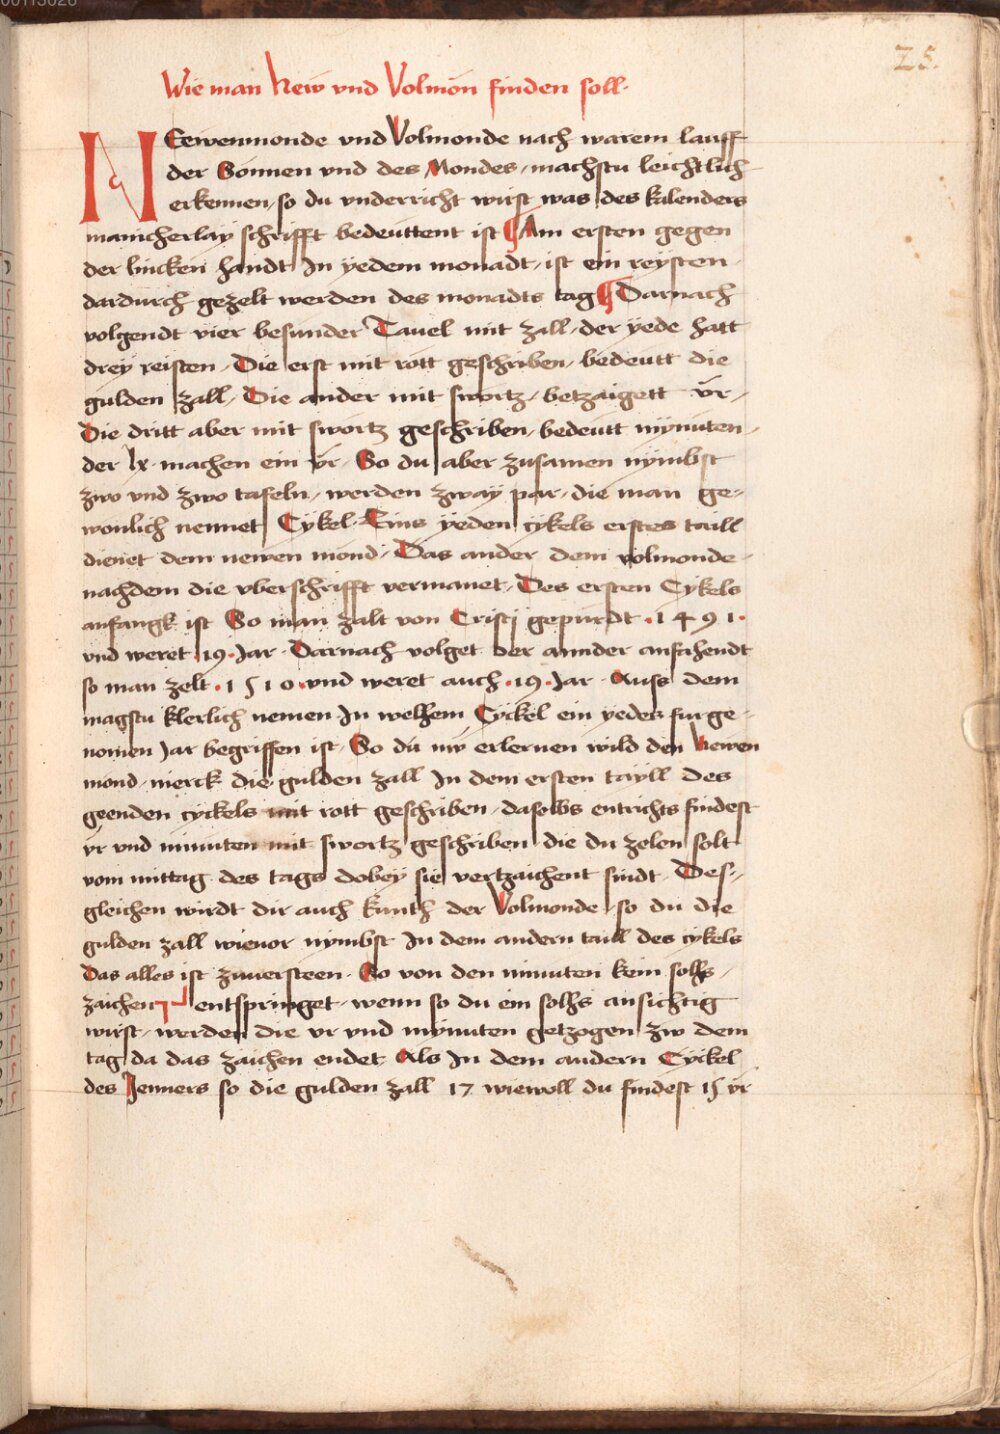 25.
Wie man New vnd Volmon finden soll.
NEewenmonde vnd Volmonde nach warem lauff
der Sonnen vnd des Mondes, machstu leichtlich
erkennen, so du vnderricht wirst was des kalenders
manicherlay schrifft bedeuttent ist ¶ Am ersten gegen
der lincken handt In yedem monadt, ist ein reysten
dardurch gezelt werden des monadts tag ¶ Darnach
volgendt vier besunder Tauel mit zall, der yede hatt
drey reisten, Die erst mit rott geschriben, bedeutt die
gulden zall, Die ander mit swortz, betzaigett vr,
Die dritt aber mit swortz geschriben, bedeutt mynuten,
der lx machen ein vr, So du aber zusamen nymbst
zwo vnd zwo tafeln, werden zway par, die man ge-
wonlich nennet Cykel. Eins yeden cykels erstes taill
dienet dem newen mond, Das ander dem volmonde
nachdem die vberschrifft vermanet, Des ersten Cykels
anfangk ist So man zalt von Cristj gepurdt .1491.
vnd weret .19. Jar. Darnach volget der annder anfahendt
so man zelt .1510. vnd weret auch .19. Jar. Auss dem
magstu klerlich nemen In welhem Cyckel ein yeder furge-
nomen Jar begriffen ist, So du nw erlernen wild den Newen
mond, merck die gulden zall In dem ersten tayll des
geenden cyckels mit rott geschriben, daselbs entrichts findest
vr vnd minuten mit swortz geschriben die du zelen solt
vom mittag des tags dobey sie vertzaichent sindt. Des-
gleichen wirdt dir auch kunth der Volmonde, so du die
gulden zall wieuor nymbst In dem andern taill des cykels
Das alles ist zuuersteen. So von den minuten kein solhs,
zaichen ⅂⅃ entspringet, wenn so du ein solhs ansichtig
wirst, werden die vr vnd mynuten getzogen zw dem
tag da das zaichen endet, Als In dem andern Cyckel
des Jenners so die gulden zall 17 wiewoll du findest 15 vr